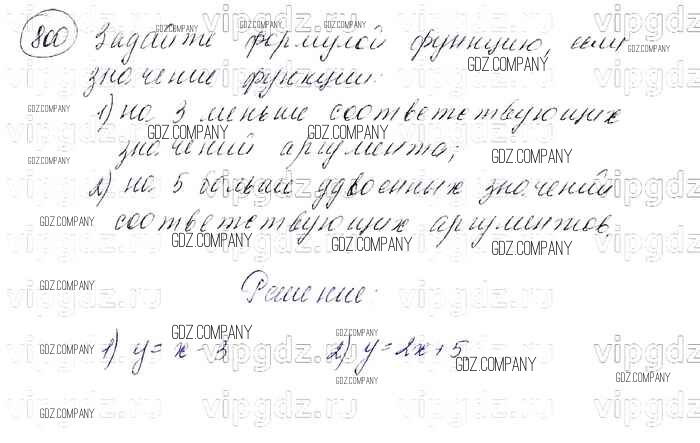 800 Задайте формулой функцию, если
значение функции:
1) на 3 меньше соответствующих
значений аргумента;
2) на 5 больше удвоенных значений
соответствующих аргументов.
Решение:
1) y = x - 3 2) y = 2x + 5
GDZ.COMPANY
vipgdz.ru